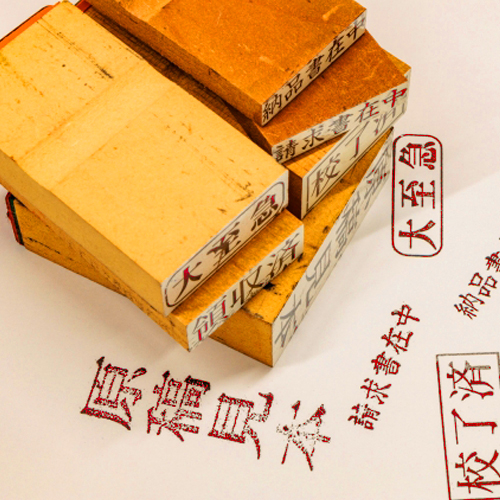 納品書在中
請求書在中
校了済
大至急
領収済
原稿見本
大至急
納品書
請求書在中
原稿見本
校了済